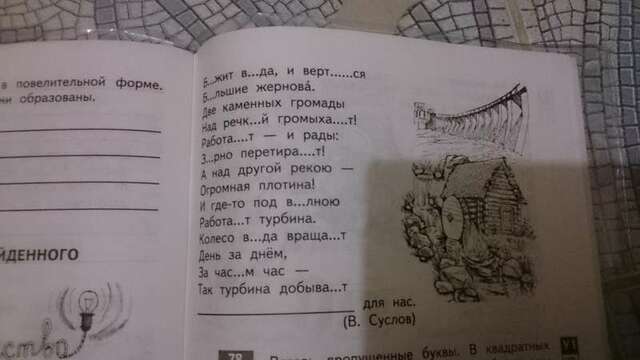 в повелительной форме.
ни образованы.
ЙДЕННОГО
ство
Б...жит в...да, и верт......ся
Б...льшие жернова́.
Две каменных громады
Над речк...й громыха....т!
Работа....т — и рады:
З...рно перетира....т!
А над другой рекою —
Огромная плотина!
И где-то под в...лною
Работа...т турбина.
Колесо в...да враща...т
День за днём,
За час...м час —
Так турбина добыва...т
____________________ для нас.
(В. Суслов)
78 пропущенные буквы. В квадратных